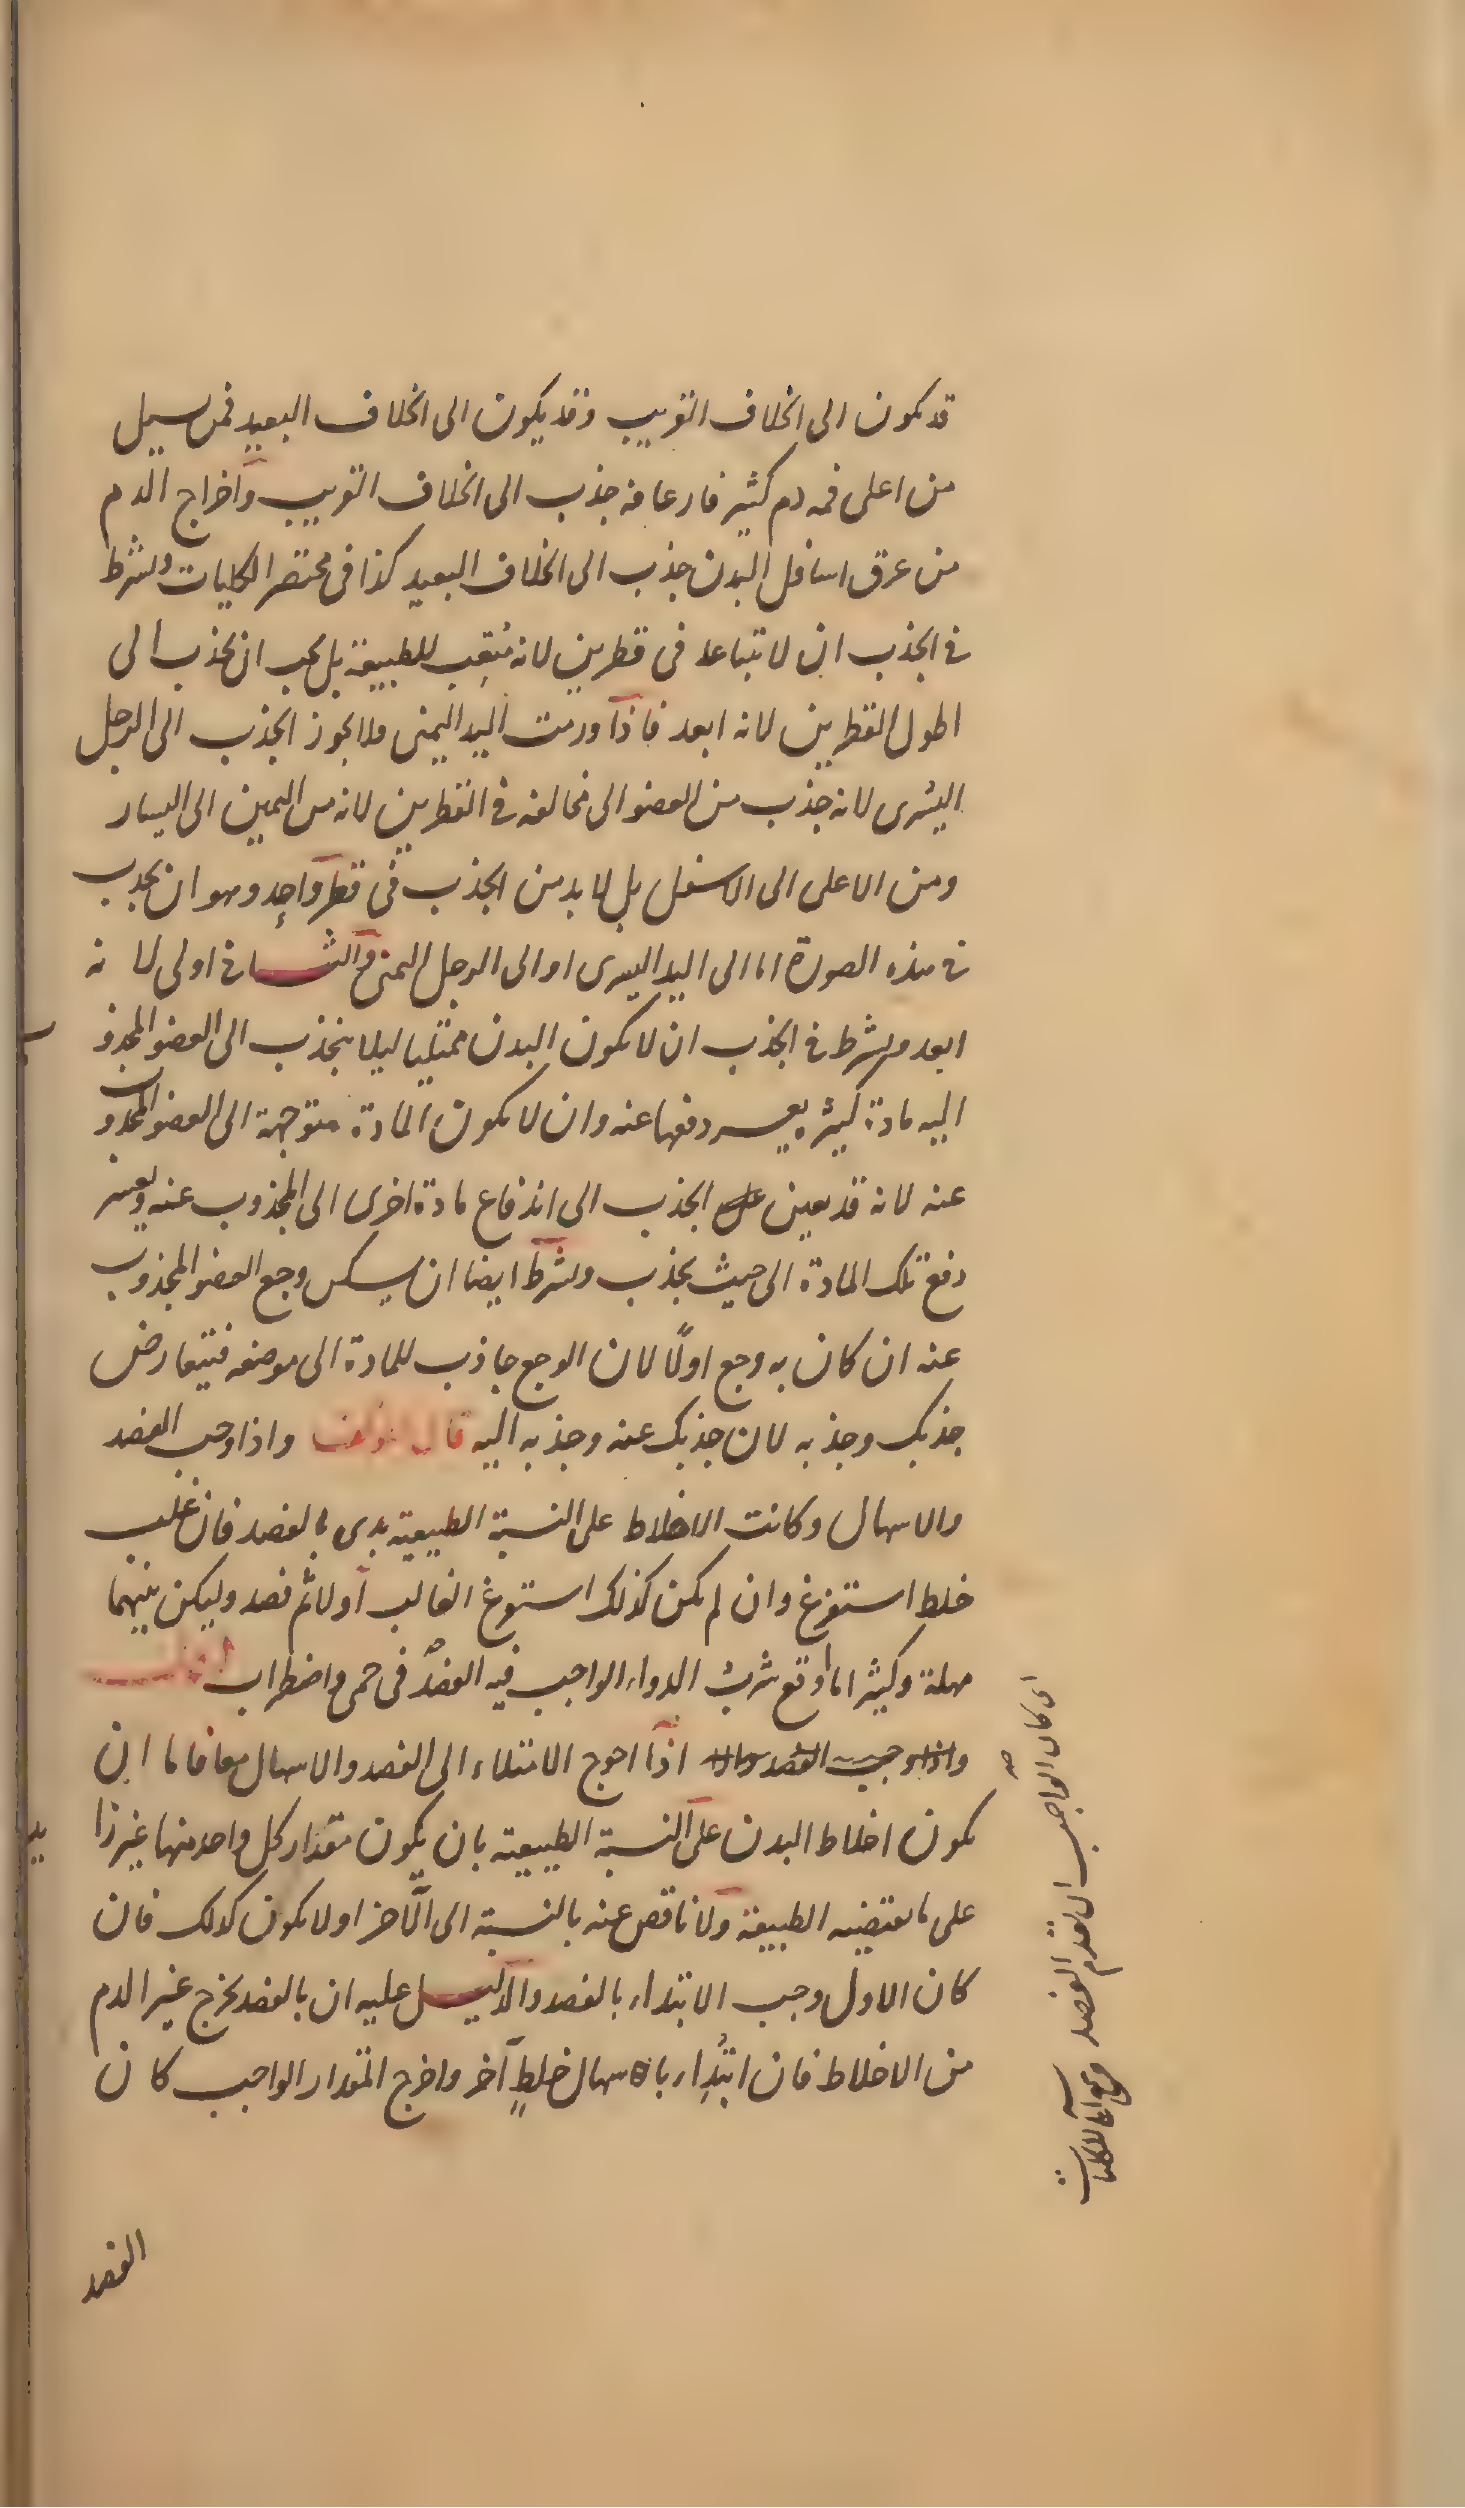 قد يكون الى الخلاف القريب وقد يكون الى الخلاف البعيد فمن يسيل
من اعلى فمه دم كثير فارعافه جذب الى الخلاف القريب واخراج الدم
من عرق اسافل البدن جذب الى الخلاف البعيد كذا فى مختصر الكليات ويشرط
فى الجذب ان لا تتباعد فى قطرين لانه مُتعِب للطبيعة بل يجب ان يجذب الى
اطول القطرين لانه ابعد فاذا ورمت اليد اليمنى فلا يجوز الجذب الى الرجل
اليسرى لانه جذب من العضو الى مخالفه فى القطرين لانه من اليمين الى اليسار
ومن الاعلى الى الاسفل بل لا بد من الجذب فى قطر واحد وهو ان يجذب
فى هذه الصورة اما الى اليد اليسرى او الى الرجل اليمنى والثانى اولى لانه
ابعد ويشرط فى الجذب ان لا يكون البدن ممتليا ليلا ينجذب الى العضو المجذوب
اليه مادة كثيرة يعسر دفعها عنه وان لا يكون المادة متوجهة الى العضو المجذوب
عنه لانه قد يعين الجذب الى اندفاع مادة اخرى الى المجذوب عنه ويعسر
دفع تلك المادة الى حيث يجذب ويشرط ايضا ان يسكن وجع العضو المجذوب
عنه ان كان به وجع اولًا لان الوجع جاذب للمادة الى موضعه فيتعارض
جذبك وجذبه لان جذبك عنه وجذبه اليه قال المؤلف واذا وجب الفصد
والاسهال وكانت الاخلاط على النسبة الطبيعية بدى بالفصد فان غلب
خلط استفرغ وان لم يكن كذلك استفرغ الغالب اولا ثم فصد وليكن بينهما
مهلة وكثيرا ما اوقع شربُ الدواء الواجب فيه الفصدُ فى حمى واضطراب
واذا وجب الفصد اذا احوج الامتلاء الى الفصد والاسهال معا فاما ان
يكون اخلاط البدن على النسبة الطبيعية بان يكون مقدار كل واحد منها غير زايد
على ما يقتضيه الطبيعة ولا ناقص عنه بالنسبة الى الآخر او لا يكون كذلك فان
كان الاول وجب الابتداء بالفصد والدليل عليه ان بالفصد يخرج غير الدم
من الاخلاط فان ابتُدِاء باسهال خلطٍ آخر واخرج المقدار الواجب كان
اى كان الواجب ان يقدم الفصد
الفصد